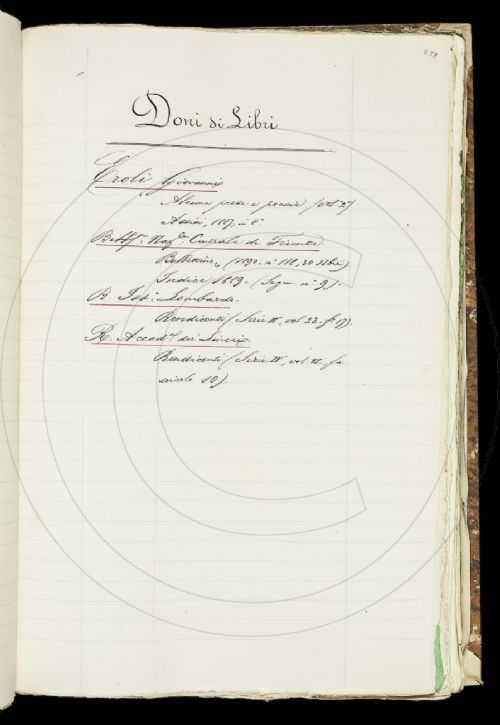 Doni di Libri
Eroli Giovanni
Alcune prose e poesie (vol 2°)
Assisi, 1887, in 8°
Bibl. Naz. Centrale di Firenze
Bollettino, (1890. n° 118, 30 9bre).
Indice 1889. (Segn. n° 9).
R. Ist. Lombardo.
Rendiconti (Serie II, vol 23. f. 17).
R. Accad. dei Lincei.
Rendiconti (Serie IV, vol VI, fa
scicolo 10).